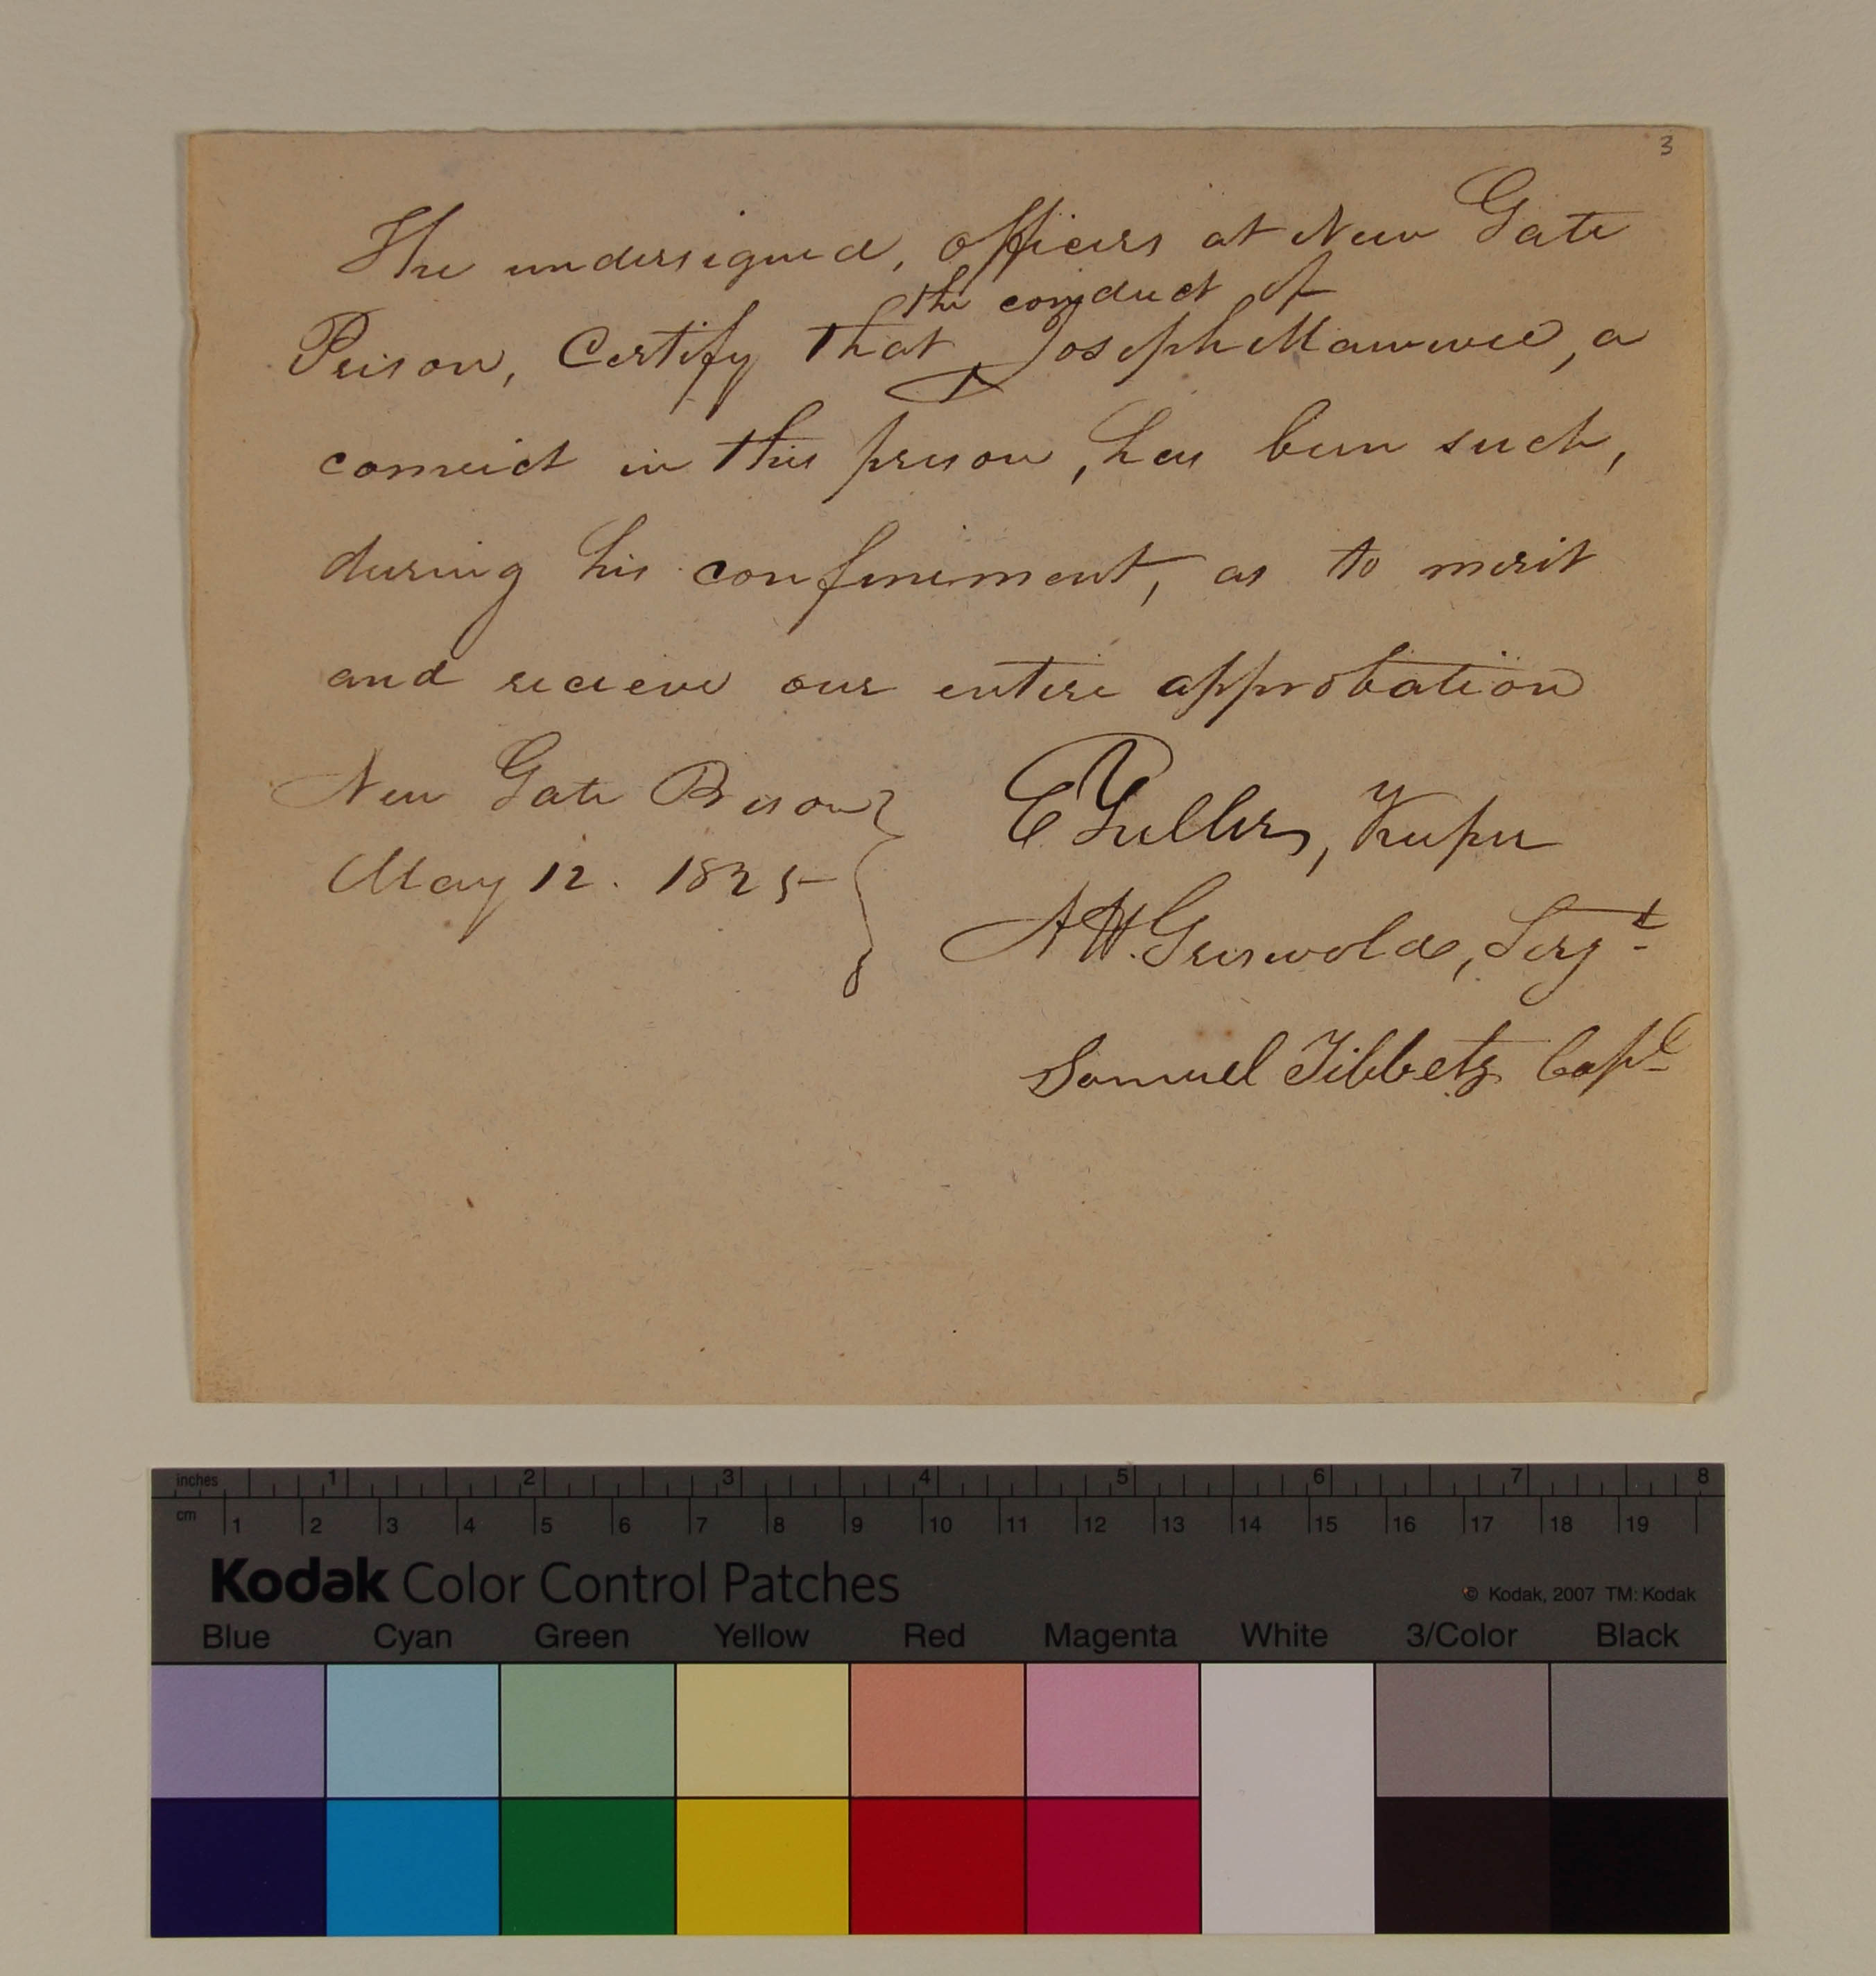 3
The undersigned, officers at New Gate
the conduct of
Prison, Certify that Joseph Mawwee, a
convict in this prison, has been such,
during his confinement, as to merit
and recieve our entire approbation
New Gate Prison
May 12. 1825
E Fuller, Keeper
A H. Griswold, Sergt
Samuel Tibbets Capt
inches 1 2 3 4 5 6 7 8
cm 1 2 3 4 5 6 7 8 9 10 11 12 13 14 15 16 17 18 19
Kodak Color Control Patches
© Kodak, 2007 TM: Kodak
Blue Cyan Green Yellow Red Magenta White 3/Color Black